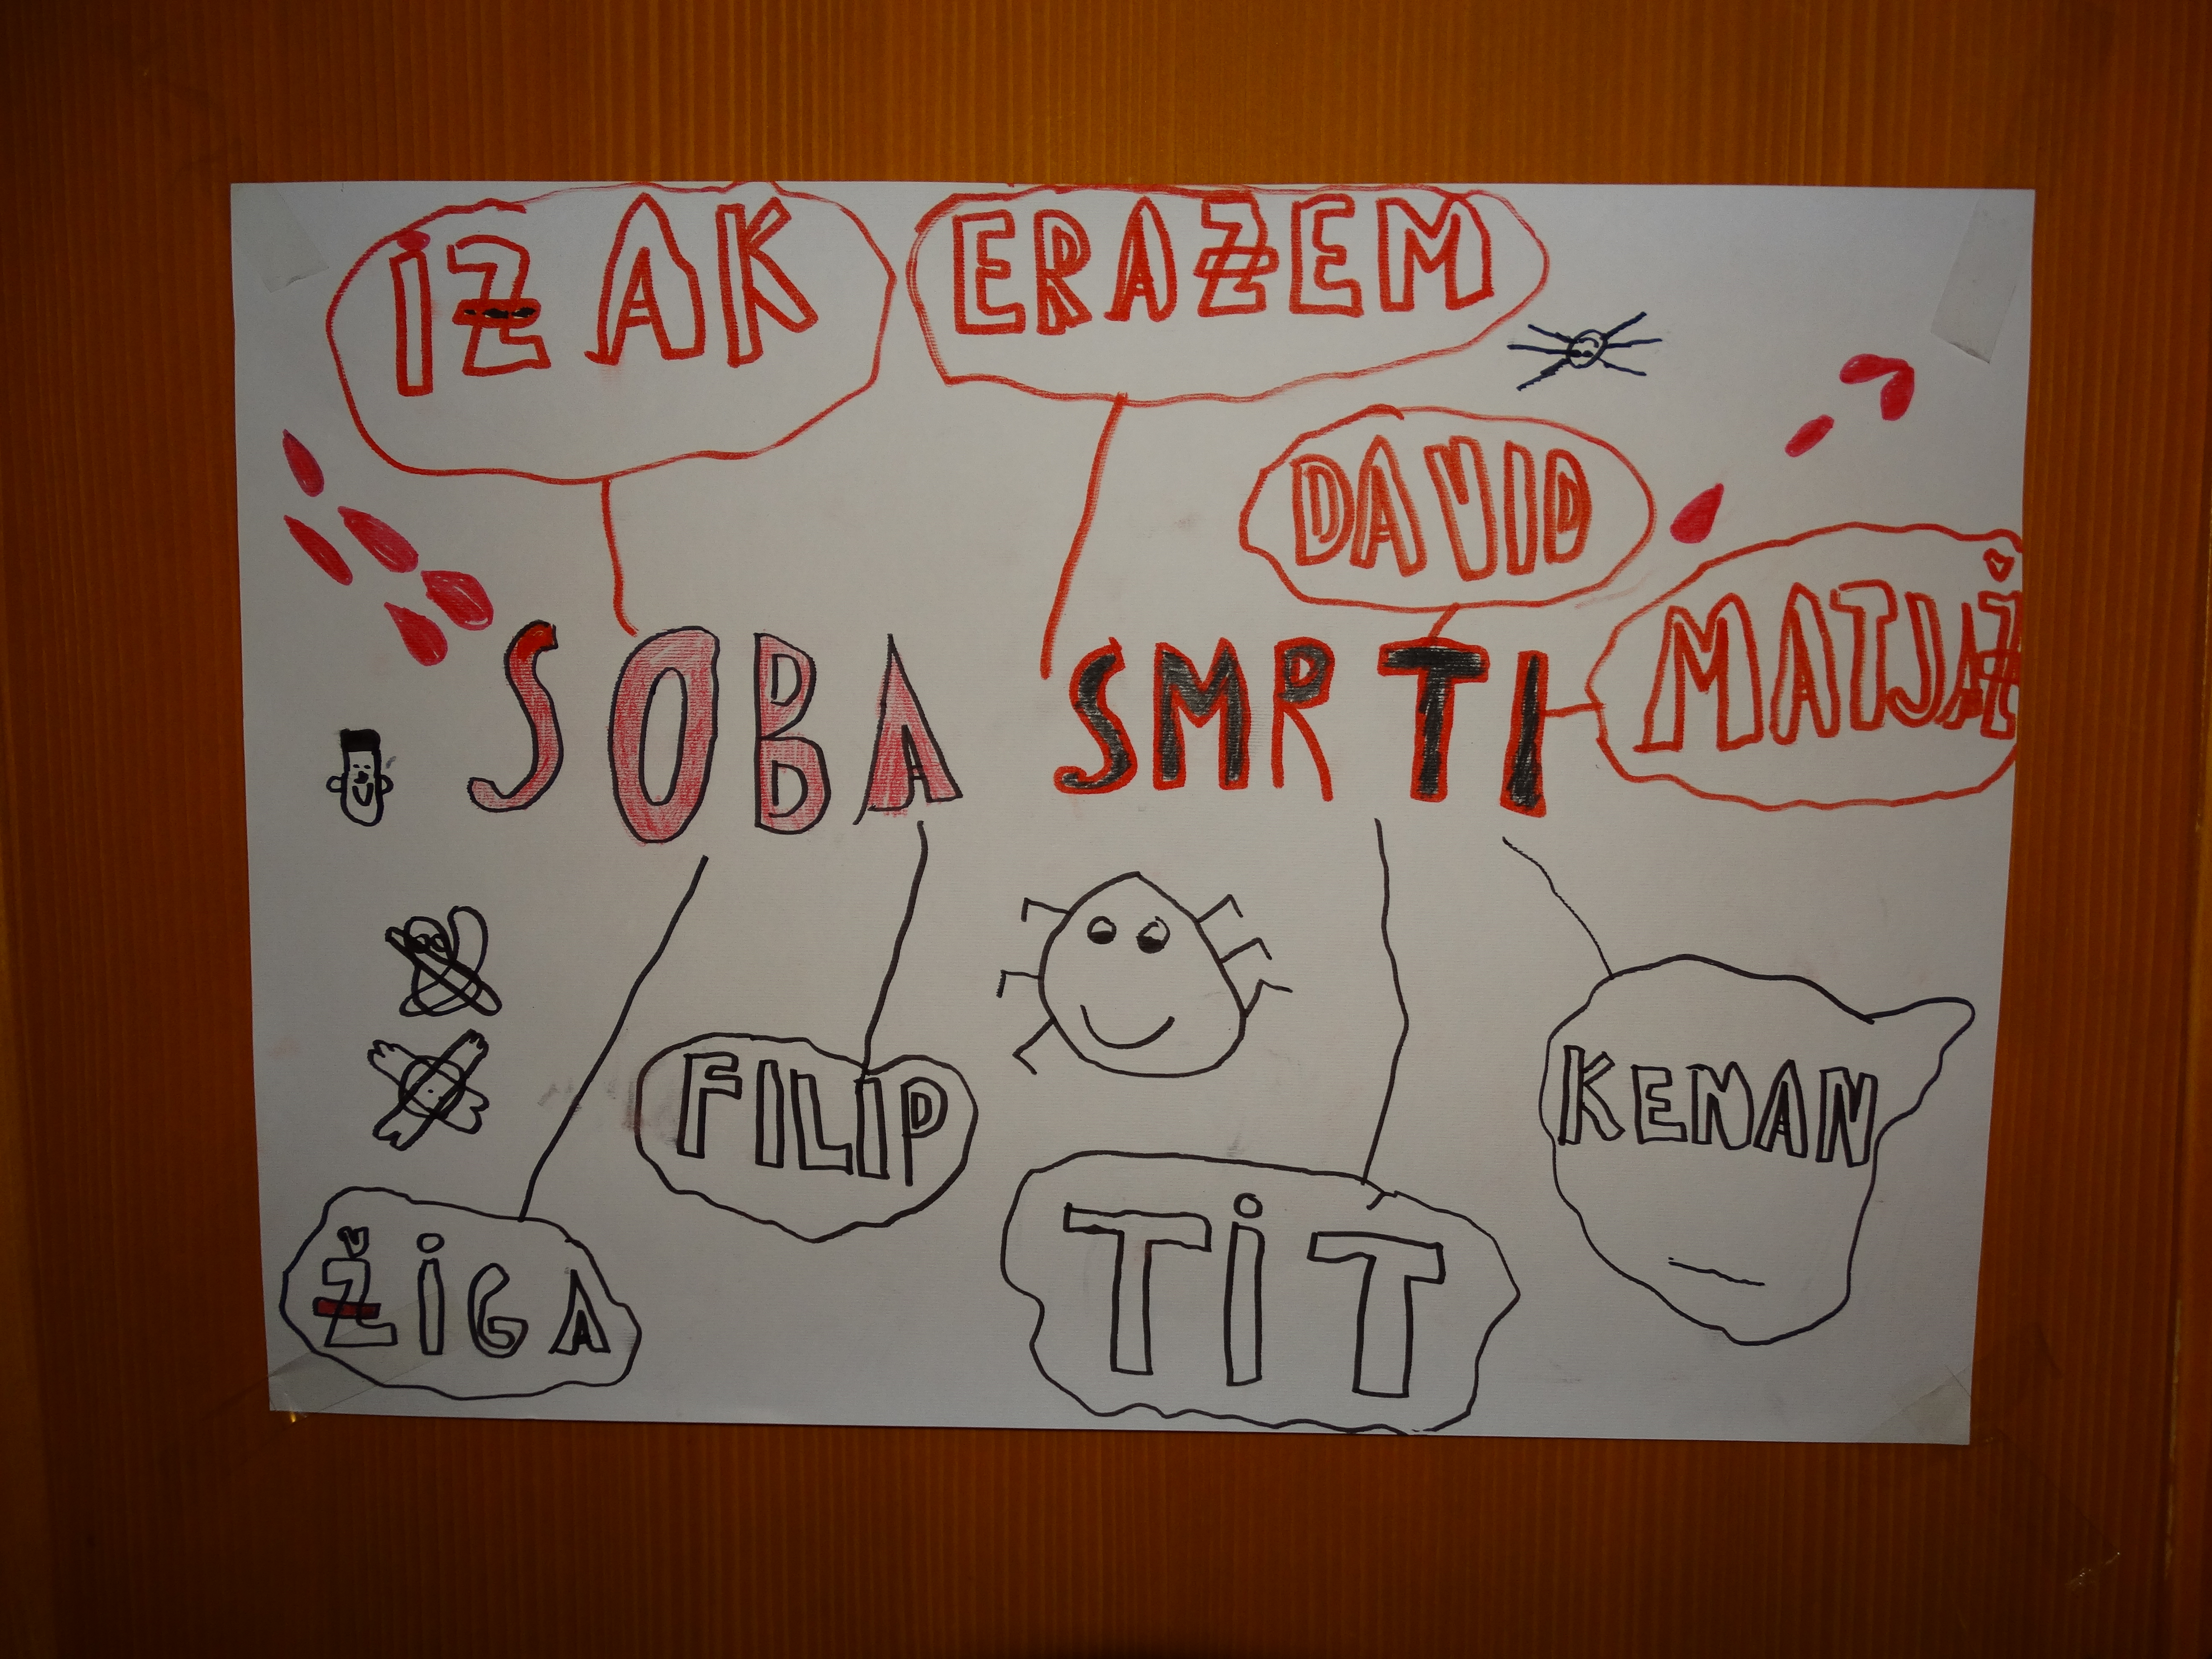 IZAK
ERAZEM
DAVID
MATJAŽ
SOBA SMRTI
FILIP
KENAN
ŽIGA
TIT